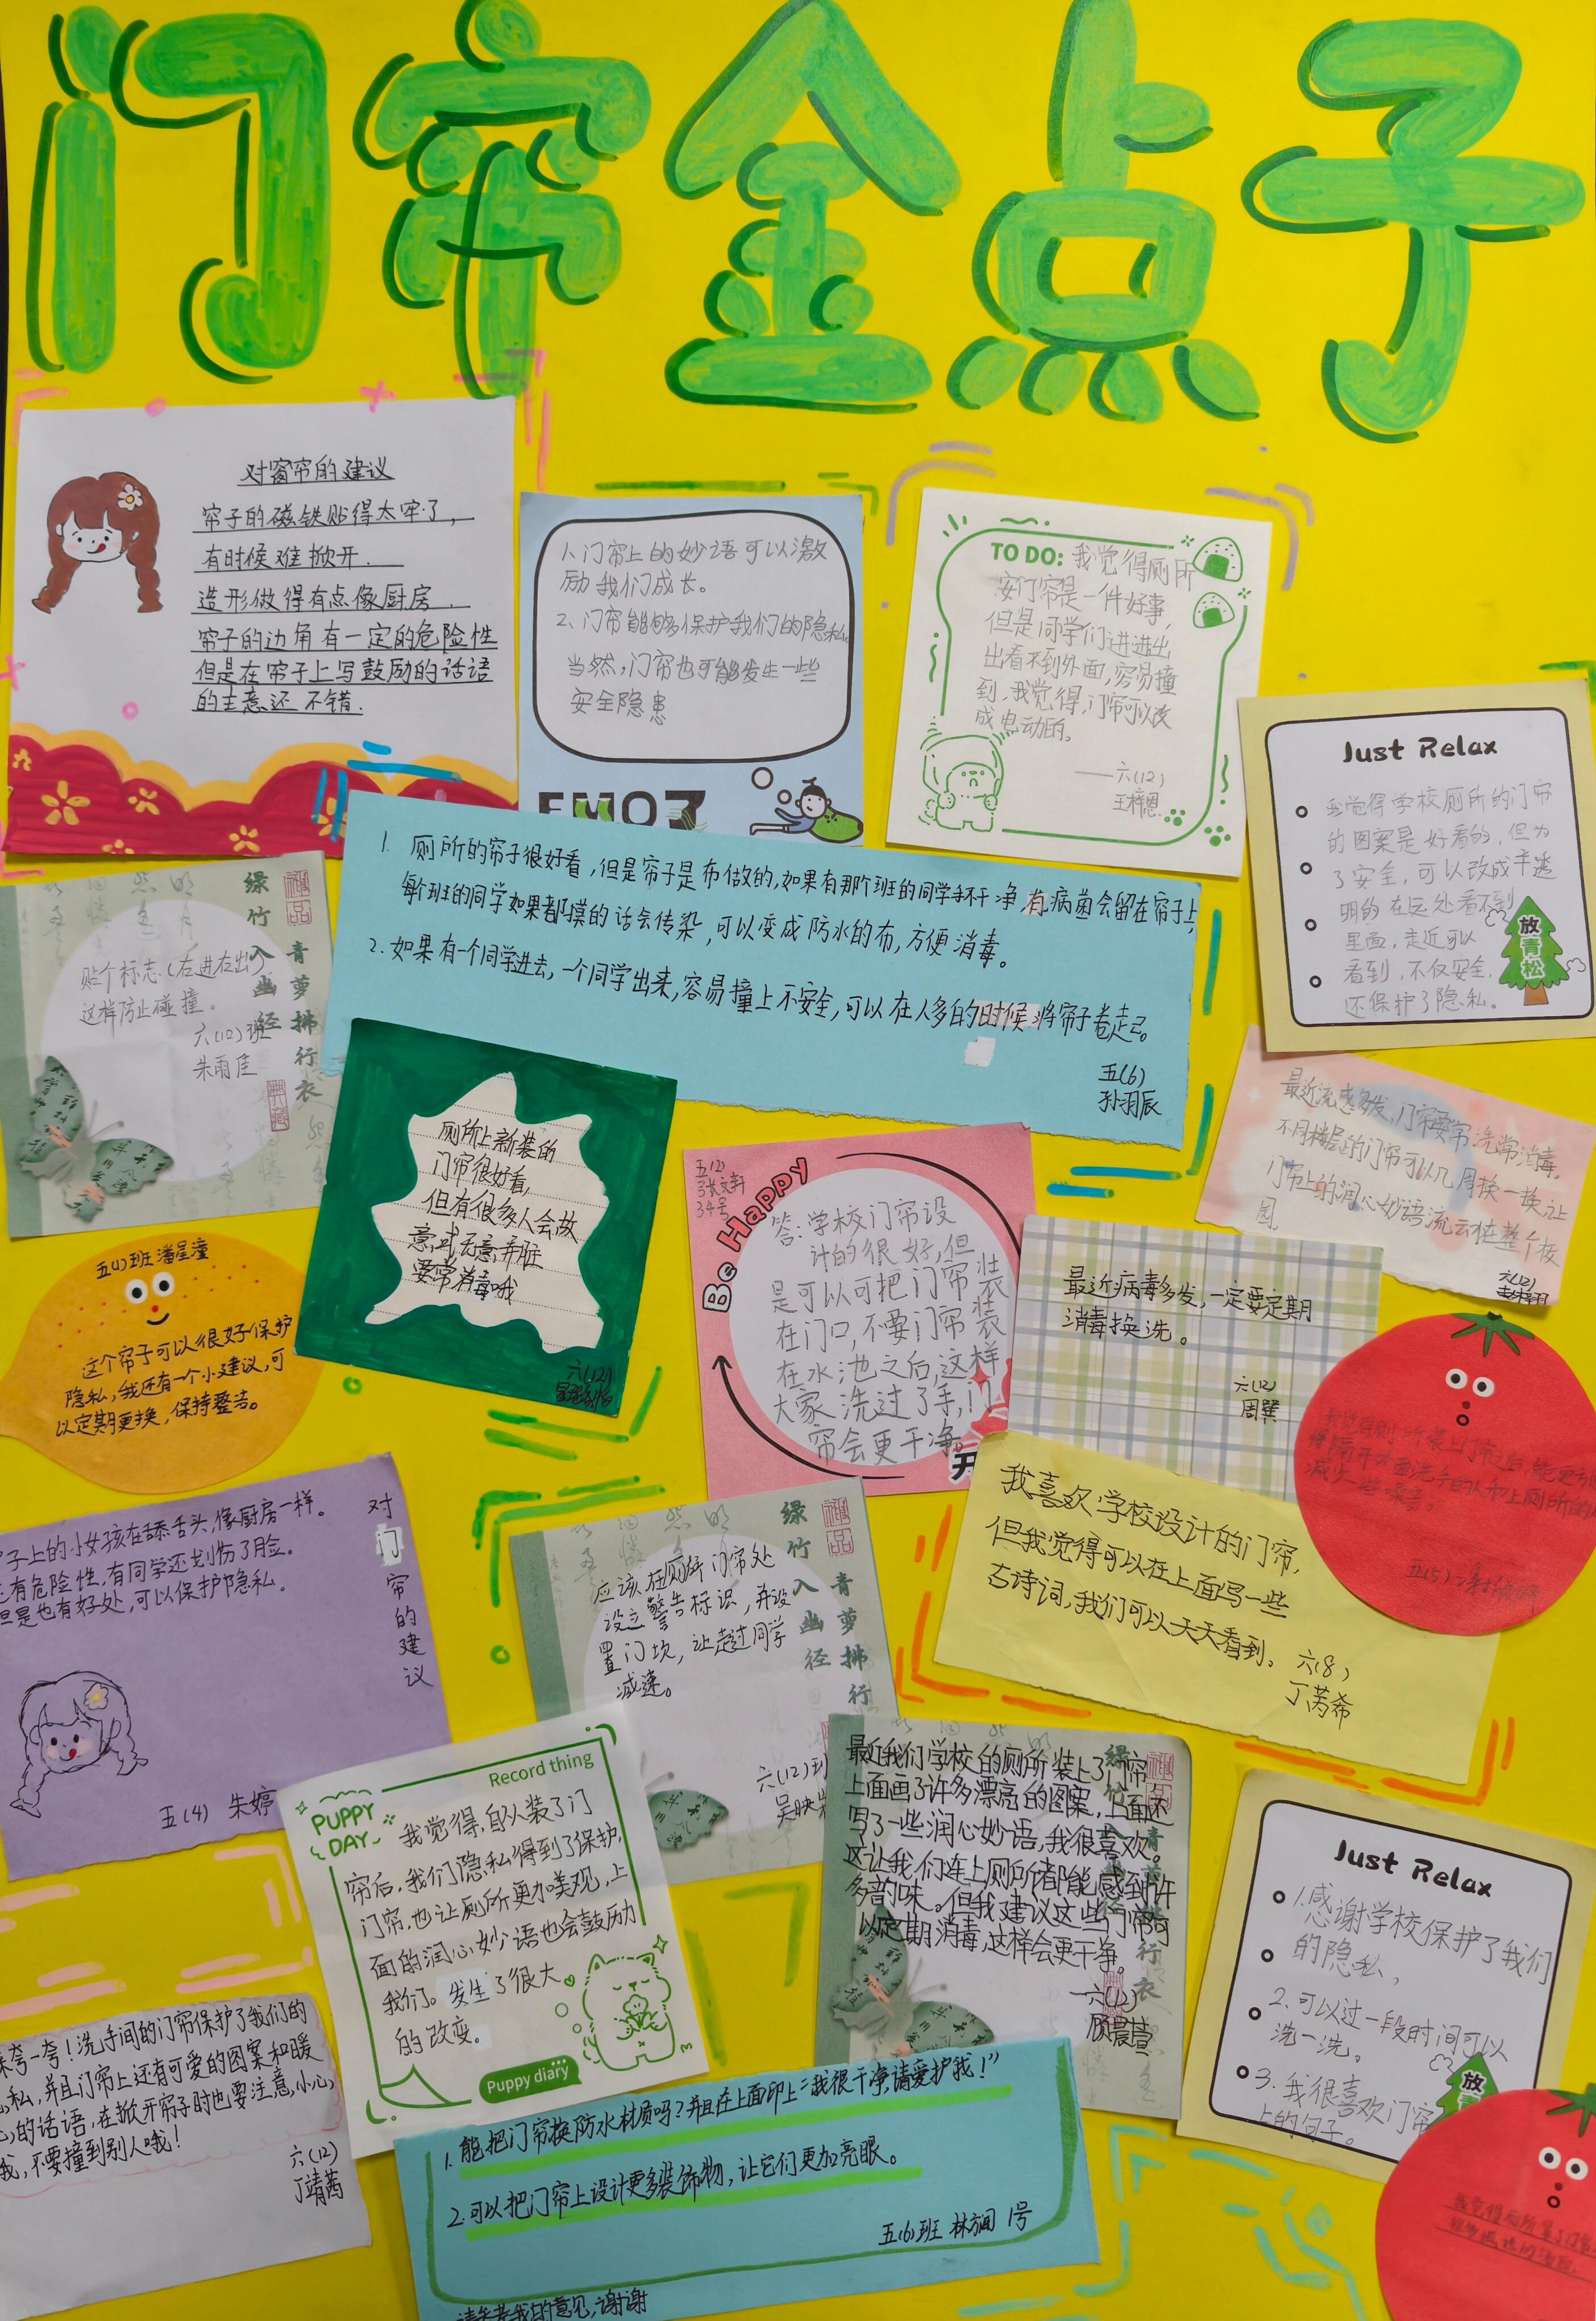 门帘金点子
对窗帘的建议
帘子的磁铁贴得太牢了，
有时候难掀开．
造形做得有点像厨房．
帘子的边角有一定的危险性
但是在帘子上写鼓励的话语
的主意还不错．
1、门帘上的妙语可以激
励我们成长。
2、门帘能够保护我们的隐私。
当然，门帘也可能发生一些
安全隐患
EMO
TO DO: 我觉得厕所
安门帘是一件好事，
但是同学们进进出
出看不到外面，容易撞
到，我觉得，门帘可以改
成电动的。
——六(12)
王梓恩
Just Relax
我觉得学校厕所的门帘
的图案是好看的，但为
了安全，可以改成半透
明的在远处看不到
里面，走近可以
看到，不仅安全，
还保护了隐私。
放青松
1. 厕所的帘子很好看，但是帘子是布做的，如果有那个班的同学手不干净，有病菌会留在帘子上，
每个班的同学如果都摸的话会传染，可以变成防水的布，方便消毒。
2. 如果有一个同学进去，一个同学出来，容易撞上不安全，可以在人多的时候将帘子卷起。
五(6)
孙羽辰
贴个标志（右进左出）
这样防止碰撞。
六(12)班
朱雨佳
绿竹入幽径
青萝拂行衣
厕所上新装的
门帘很好看，
但有很多人会故
意或无意弄脏
要常消毒哦
六(12)
五(2)
张文轩
34号
Be Happy
答：学校门帘设
计的很好，但
是可以可把门帘装
在门口，不要门帘装
在水池之后，这样
大家洗过了手，门
帘会更干净。
最近流感多发，门帘要常洗常消毒。
不同楼层的门帘可以几周换一换，让
门帘上的润心妙语流云在整个校
园
六(12)
最近病毒多发，一定要定期
消毒换洗。
六(12)
周巽
五(4)班 潘星潼
这个帘子可以很好保护
隐私，我还有一个小建议，可
以定期更换，保持整洁。
五(5)
我喜欢学校设计的门帘，
但我觉得可以在上面写一些
古诗词，我们可以天天看到。
六(8)
丁芮希
对门帘的建议
子上的小女孩在舔舌头，像厨房一样。
有危险性，有同学还划伤了脸。
但是也有好处，可以保护隐私。
五(4) 朱婷
应该在厕所门帘处
设立警告标识，并设
置门坎，让走过同学
减速。
六(12)班
绿竹入幽径
青萝拂行
Record thing
PUPPY
DAY
我觉得，自从装了门
帘后，我们隐私得到了保护，
门帘，也让厕所更加美观，上
面的润心妙语也会鼓励
我们。发生了很大
的改变。
Puppy diary
最近我们学校的厕所装上了门帘
上面画了许多漂亮的图案，上面还
写了一些润心妙语，我很喜欢。
这让我们连上厕所都能感到许
多韵味。但我建议这些门帘可
以定期消毒，这样会更干净。
六(12)
Just Relax
1.感谢学校保护了我们
的隐私，
2.可以过一段时间可以
洗一洗。
3.我很喜欢门帘
上的句子。
夸一夸！洗手间的门帘保护了我们的
私，并且门帘上还有可爱的图案和暖
的话语，在掀开帘子时也要注意，小心，
我，不要撞到别人哦！
六(12)
丁靖茜
1. 能把门帘换防水材质吗？并且在上面印上：“我很干净，请爱护我！”
2.可以把门帘上设计更多装饰物，让它们更加亮眼。
五(6)班 林方圆 1号
我的意见，谢谢